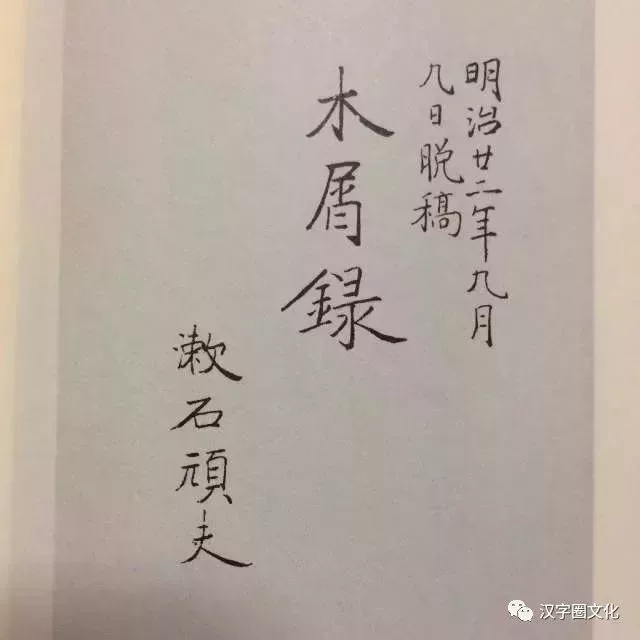 明治廿二年九月
九日脱稿
木屑録
漱石頑夫
汉字圈文化